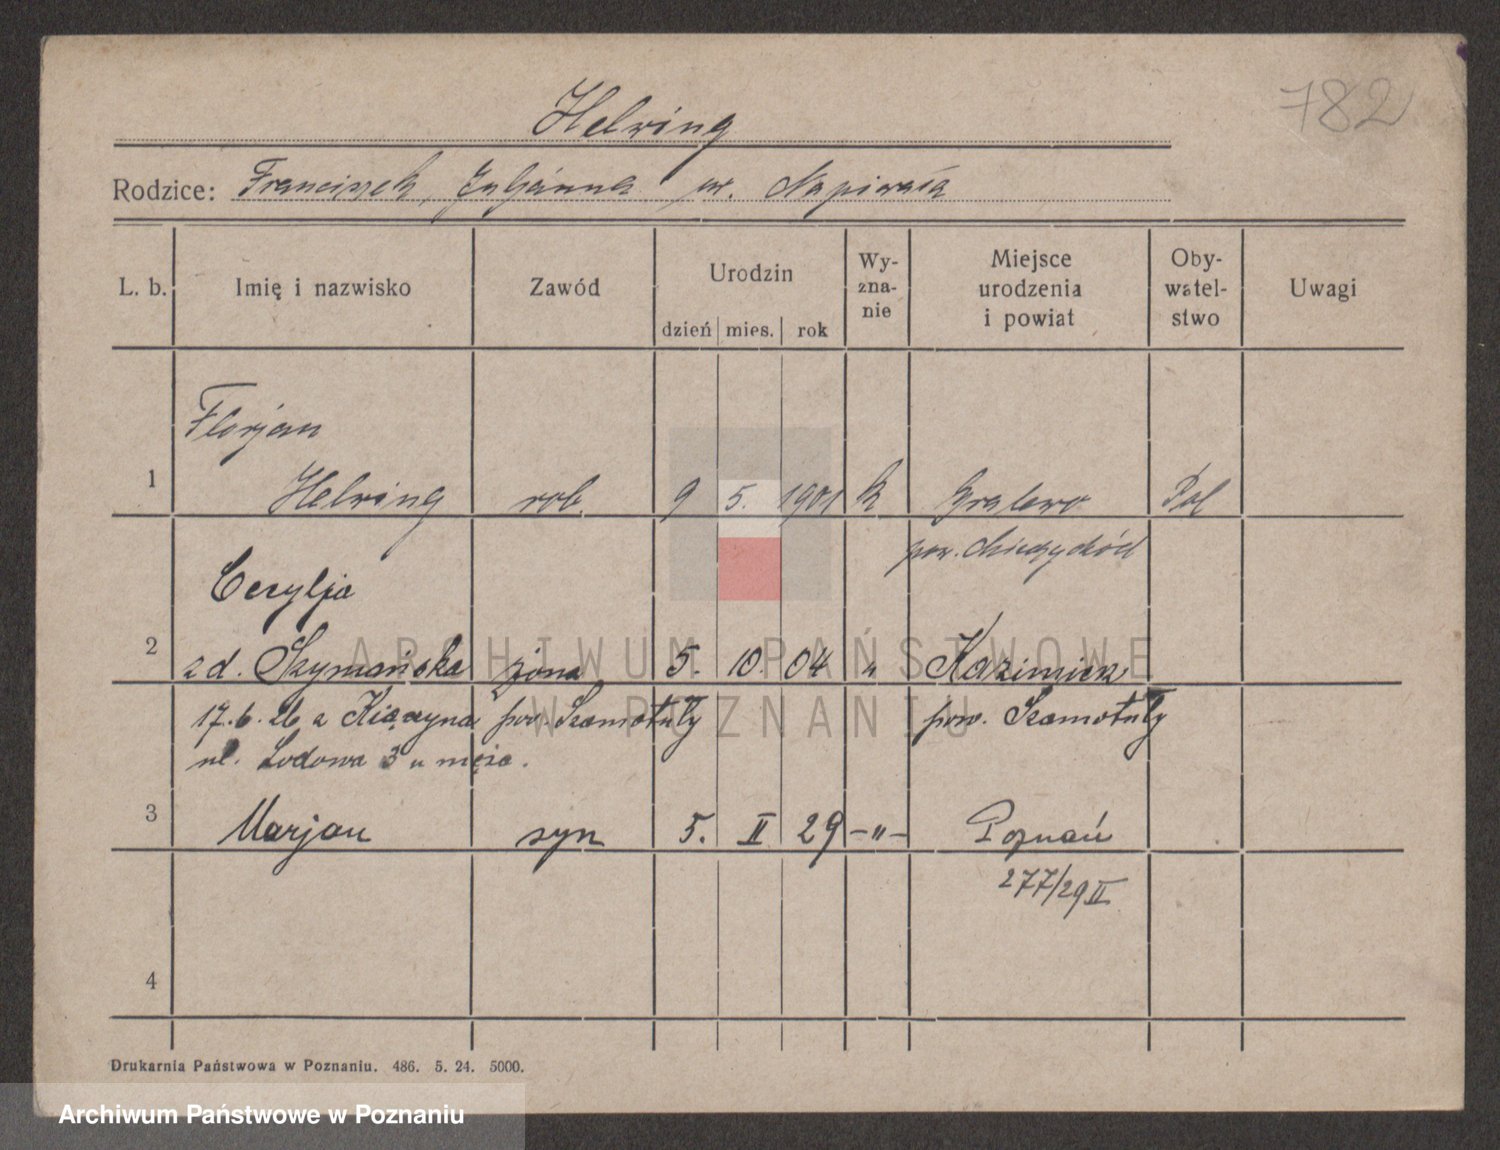 782
Helwing
Rodzice: Franciszek, Juljanna ur. Napierała
L. b. Imię i nazwisko Zawód Urodzin dzień mies. rok Wy-zna-nie Miejsce urodzenia i powiat Oby-watel-stwo Uwagi
Florjan
1 Helwing rob. 9 5. 1901 k Gralewo Pol
pow. Międzychód
Cecylja
2 z d. Szymańska żona 5. 10. 04 " Kazimierz
17.6.26 z Kiączyna pow. Szamotuły pow. Szamotuły
ul. Lodowa 3 u męża.
3 Marjan syn 5. II 29 -"- Poznań
277/29 II
4
Drukarnia Państwowa w Poznaniu. 486. 5. 24. 5000.
ARCHIWUM PAŃSTWOWE
W POZNANIU
Archiwum Państwowe w Poznaniu